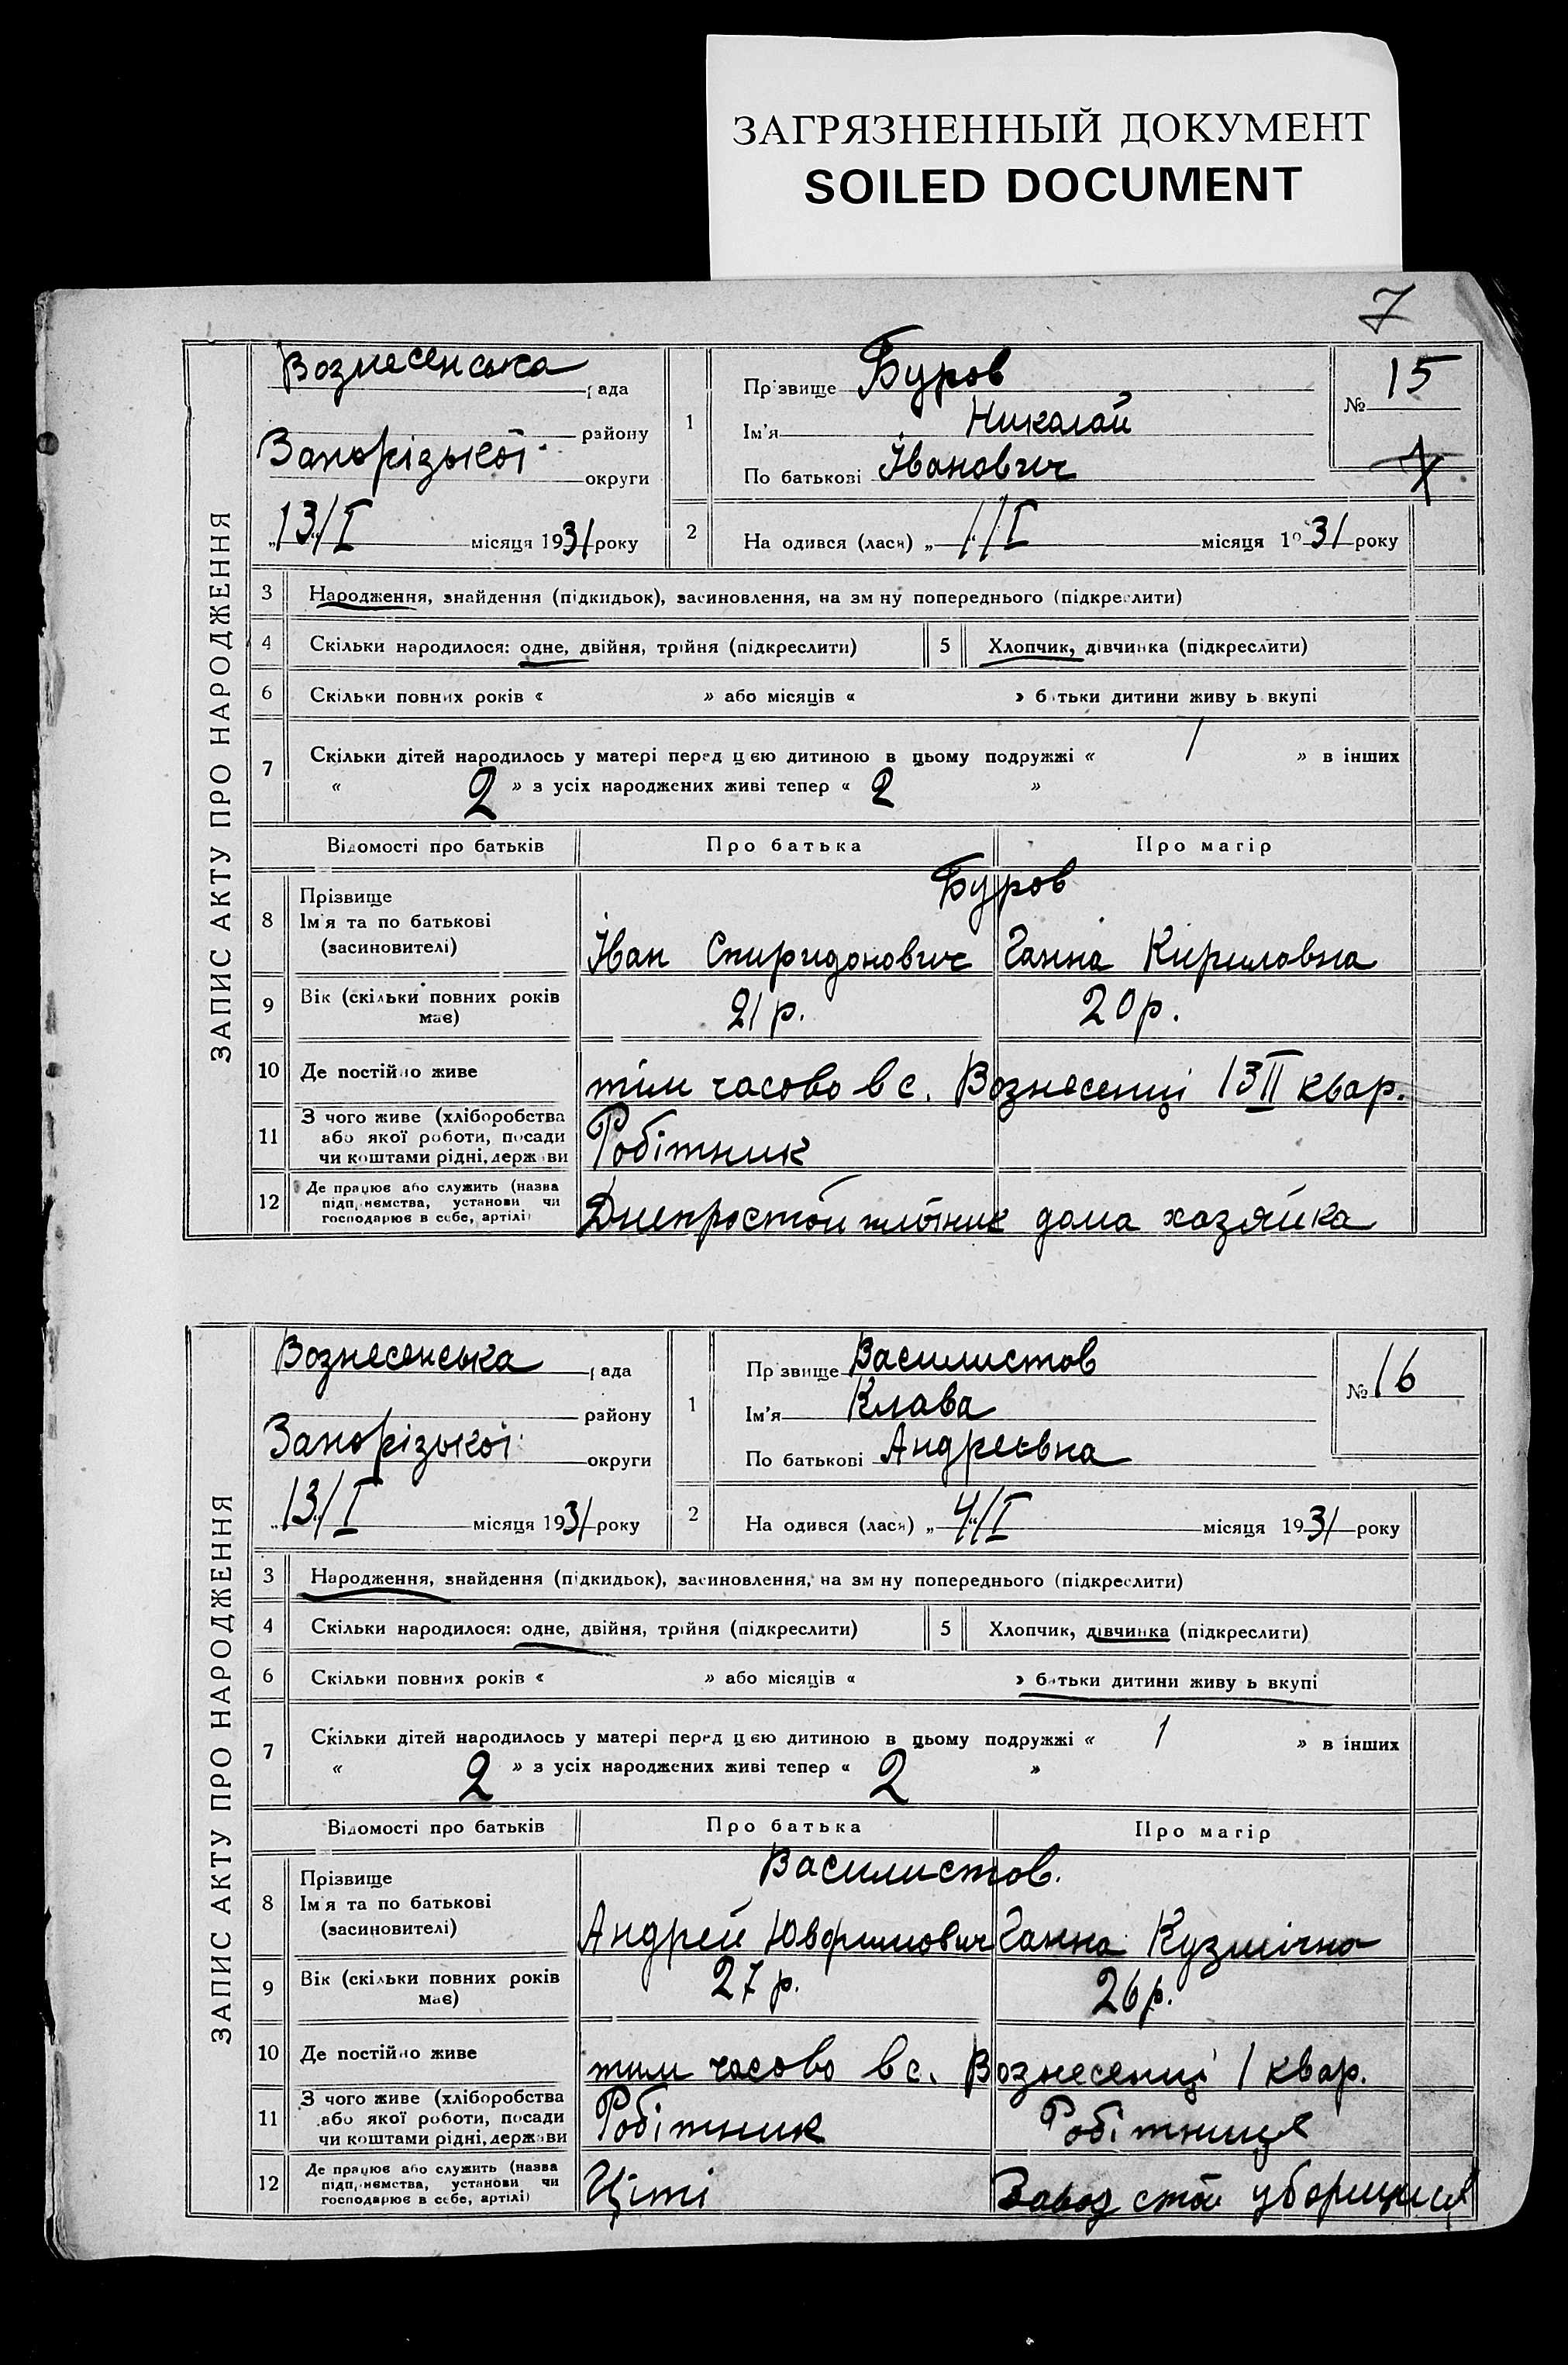 ЗАГРЯЗНЕННЫЙ ДОКУМЕНТ
SOILED DOCUMENT
7
ЗАПИС АКТУ ПРО НАРОДЖЕННЯ
Вознесенська рада
району
Запорізької округи
„13/I місяця 1931 року
1 Прізвище Буров
Ім'я Николай
По батькові Іванович
№ 15
2 На одився (лася) „1/I місяця 1931 року
3 Народження, знайдення (підкидьок), засиновлення, на зм ну попереднього (підкреслити)
4 Скільки народилося: одне, двійня, трійня (підкреслити) 5 Хлопчик, дівчинка (підкреслити)
6 Скільки повних років « » або місяців « » батьки дитини живу ь вкупі
7 Скільки дітей народилось у матері перед цією дитиною в цьому подружжі « 1 » в інших
« 2 » з усіх народжених живі тепер « 2 »
Відомості про батьків Про батька Про матір
8 Прізвище
Ім'я та по батькові
(засиновителі)
Буров
Іван Спиридонович Ганна Кириловна
9 Вік (скільки повних років
має)
21 р. 20 р.
10 Де постійно живе тим часово в с. Вознесенці 13 II квар.
11 З чого живе (хліборобства
або якої роботи, посади
чи коштами рідні, держави
Робітник
12 Де працює або служить (назва
підприємства, установи чи
господарює в себе, артілі)
Днепростой плотник дома хозяйка
ЗАПИС АКТУ ПРО НАРОДЖЕННЯ
Вознесенська рада
району
Запорізької округи
„13/I місяця 1931 року
1 Прізвище Василистов
Ім'я Клава
По батькові Андреевна
№ 16
2 На одився (лася) „4/I місяця 1931 року
3 Народження, знайдення (підкидьок), засиновлення, на зм ну попереднього (підкреслити)
4 Скільки народилося: одне, двійня, трійня (підкреслити) 5 Хлопчик, дівчинка (підкреслити)
6 Скільки повних років « » або місяців « » батьки дитини живу ь вкупі
7 Скільки дітей народилось у матері перед цією дитиною в цьому подружжі « 1 » в інших
« 2 » з усіх народжених живі тепер « 2 »
Відомості про батьків Про батька Про матір
8 Прізвище
Ім'я та по батькові
(засиновителі)
Василистов.
Андрей Ганна Кузмічна
9 Вік (скільки повних років
має)
27 р. 26 р.
10 Де постійно живе тим часово в с. Вознесенці 1 квар.
11 З чого живе (хліборобства
або якої роботи, посади
чи коштами рідні, держави
Робітник Робітниця
12 Де працює або служить (назва
підприємства, установи чи
господарює в себе, артілі)
Ціті Завод стой уборщиця